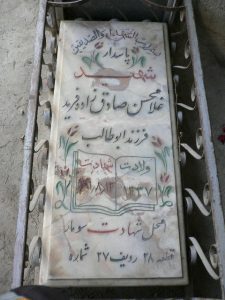 پاسدار
شهید
غلامحسن صادق نژاد فرید
فرزند ابوطالب
ولادت شهادت
۱۳۳۷
محل شهادت سومار
قطعه ۲۸ ردیف ۲۷ شماره